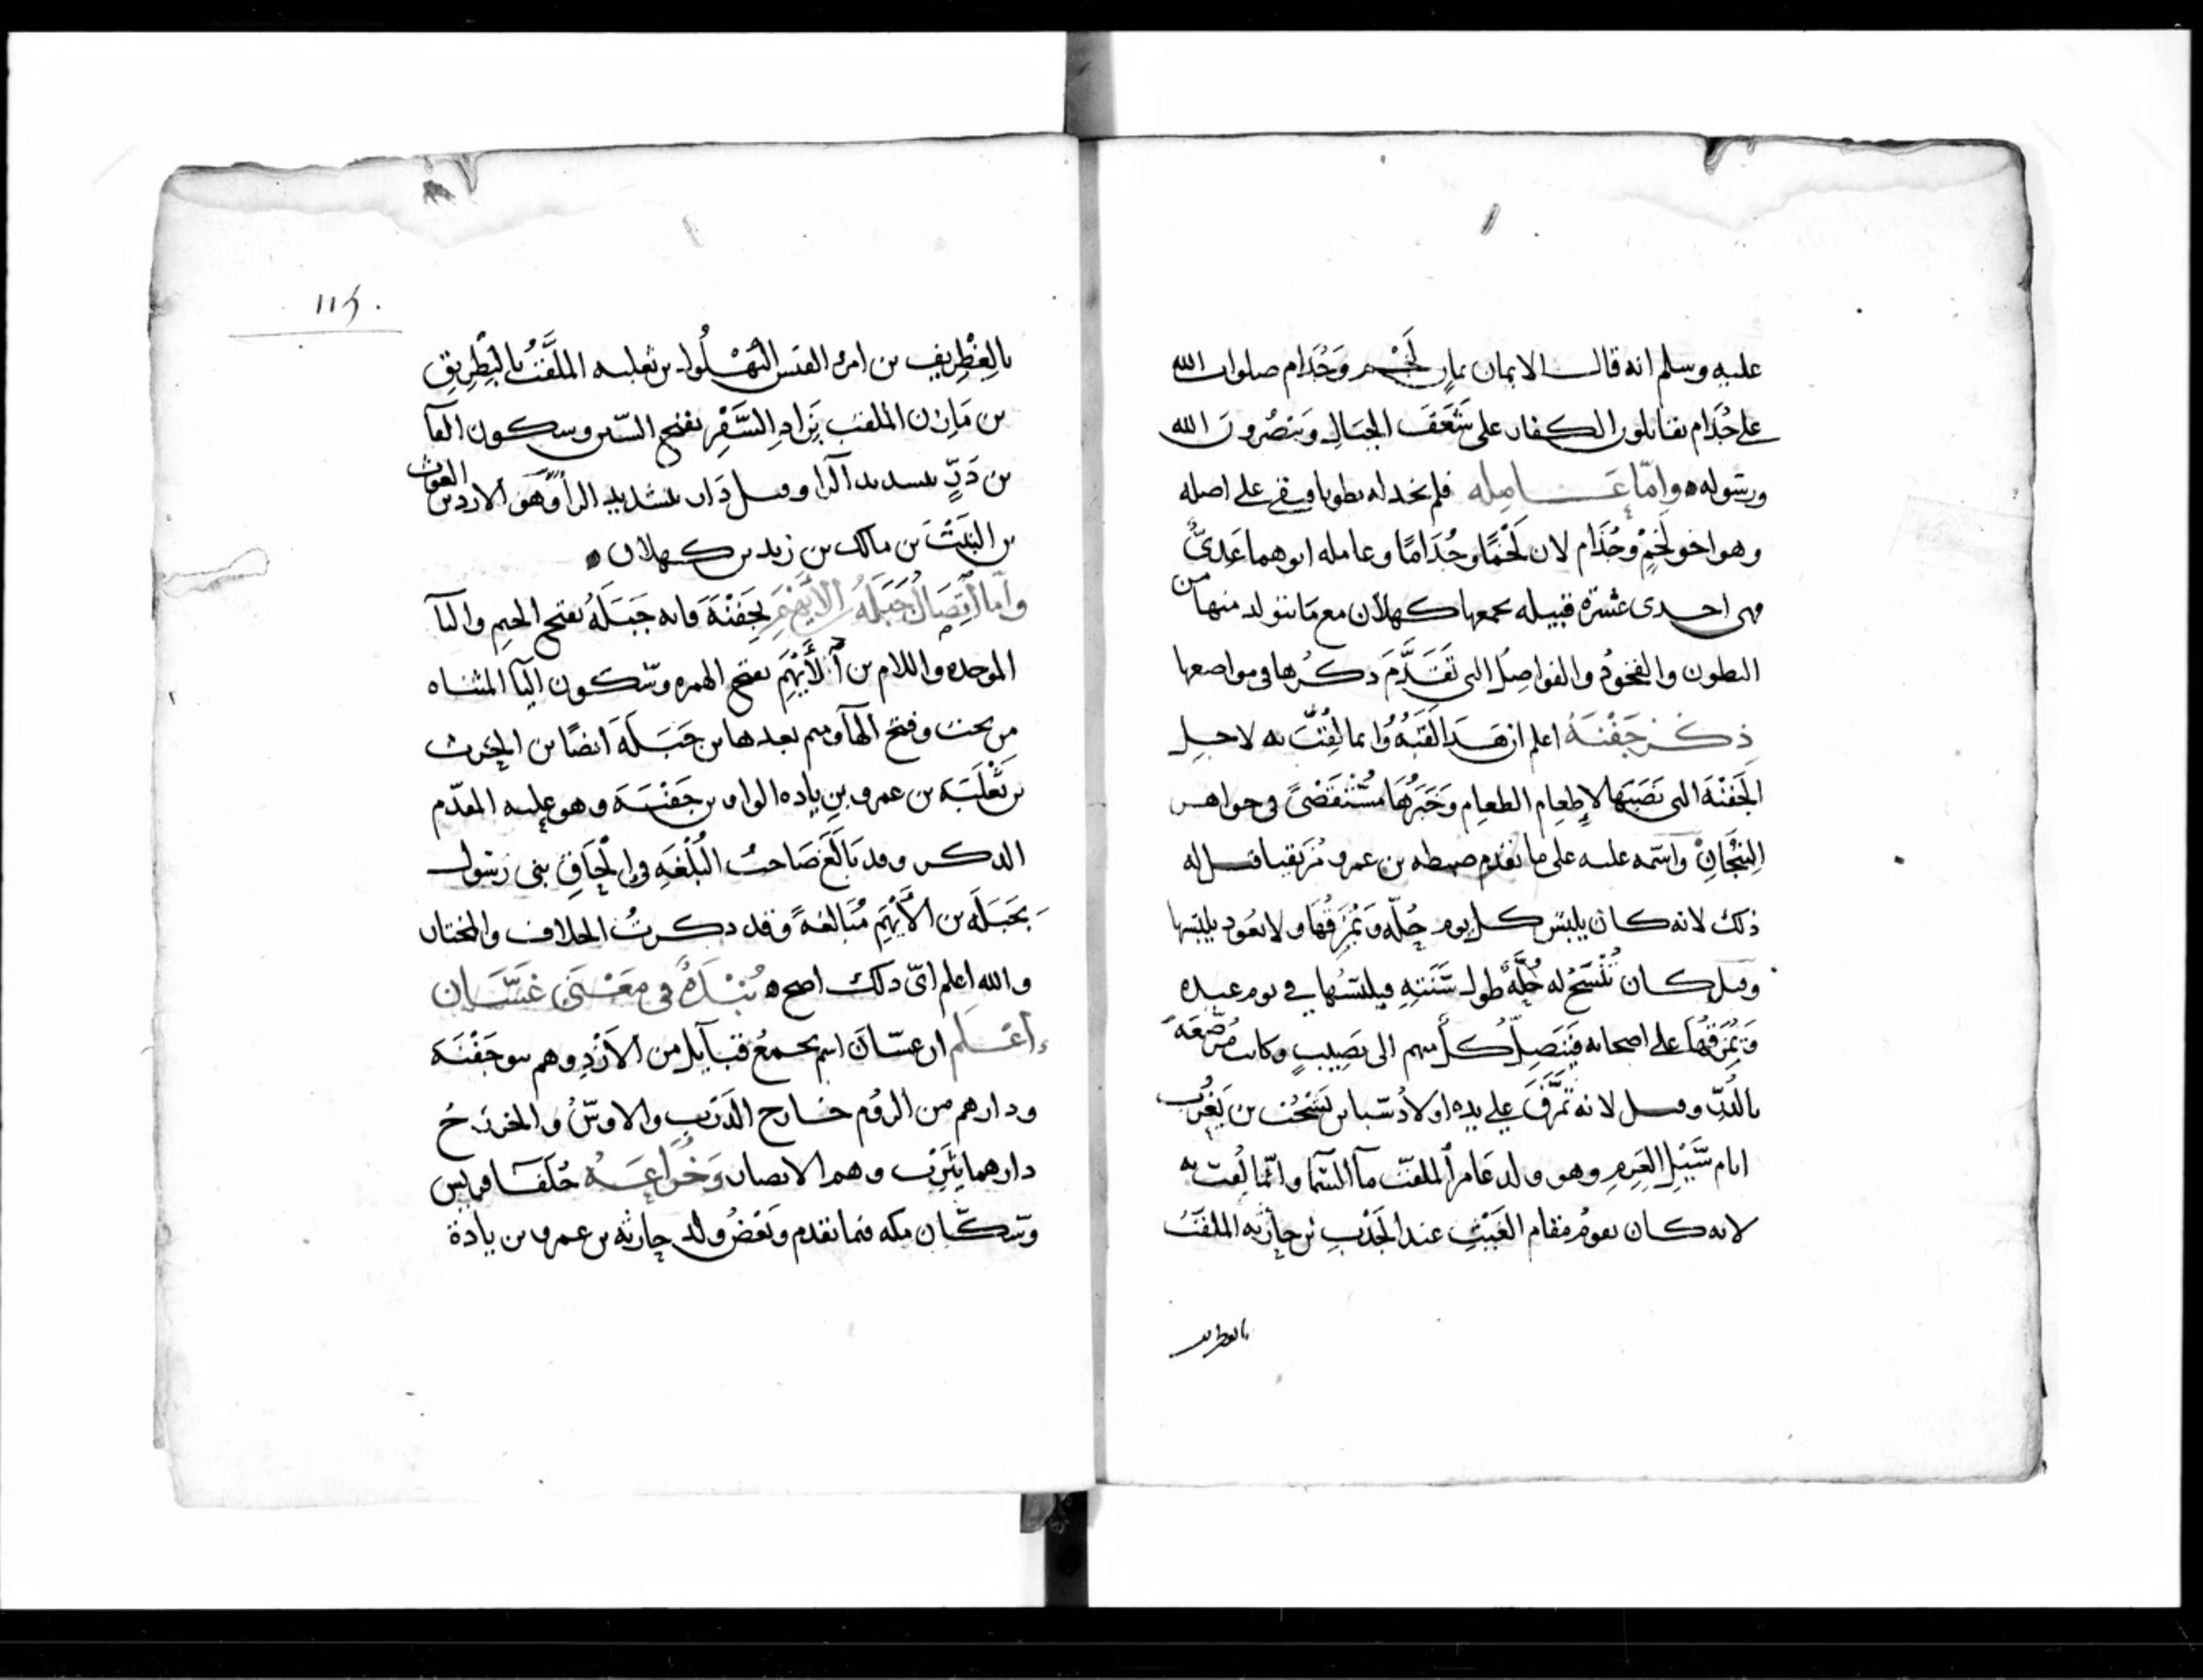 عليه وسلم انه قال الايمان يمانٍ لَخْم وَجُذَام صلوات الله
على جُذَام يقاتلون الكفار على شَعَفَ الجبَالِ وَيَنْصُرونَ الله
ورسوله وامّا عَامله فلم نجد له بطونا على اصله
وهو اخو لَخْمٍ وجُذَام لان لَخْمًا وجُذَامًا وعامله ابوهما عَدىّ
فهى احدى عشرة قبيله يجمعها كهلان مع مَا يتولد منها من
البطون والفخوذ والفواصِل التى تَقَدَّمَ ذكرُها فى مواضعها
ذِكْر جَفْنَهُ اعلم ان هَذ القَبه وانما لُقِّبَ به لاجلِ
الجَفْنَة التى نَصَبَها لإطعِام الطعام وَخَبَرُهَا مُسْتقصًى فى جواهر
التِيْجَانِ واسمه علبه على ما تقدم ضبطه بن عمرو مُزَيقيا قيل له
ذلك لانه كان يلبس كل يوم حُلّه وَيُمَزِّقُهَا ولا يعُود يلبسها
وقيل كان تُنْسَجُ له حُلّهٌ طول سَنَتِهِ فيلبسُهَا فى يوم عيده
وَيُمَزِّقُهَا على اصحابه فَيَصِلُ كُل منهم الى نَصِيبٍ وكانت مُرَصَّعَهً
بالدُرِّ وقيل لانه تَمَزَّقَ على يده اولادُ سَبا بن يَشْجُبَ بن يَعْرُب
ايام سَيْلِ العَرِمِ وهو ولد عَامر الملقب مآ السّمآ وانّما لُقب به
لانه كان يقومُ مقام الغَيْثِ عند الجَدْبِ بْن حارثه الملقَّبُ
بالغطريف
١١٤
بالِغطْرِيفِ بن امرئ القيس البُهْلُول بن ثعلبه الملَقَّبُ بالبِطْرِيقِ
بن مَازن الملقب بِزَادِ السَّفْرِ بفتح السّين وسكون الفآ
بن دَرٍّ بتشديد الرا وقيل دَار بتشديد الرا وَهو الازد بن الغوث
بن النَبْتَ بن مالك بن زيد بن كهلان
وَامّا اتِّصَالُ جَبَلَهُ بن الأيْهَمِ بجَفْنَهَ فانه جَبَلَهُ بفتح الجيم والبآ
الموحده واللام بن الأَيْهَمِ بفتح الهمزه وسكون اليآ المثناه
من تحت وفتح الهآ وميم بعدها بن جَبَلَهَ ايضًا بن الحَرث
بن ثَعْلَبَه بن عمرو بن بزياده الواو بن جَفْنَهَ وهو علبه المقدّم
الذكر وقد بَالَغَ صَاحبُ البُلْغَهِ فى إلْحَاقِ بنى رَسُول
بجَبَلَه بن الأَيْهَمِ مُبَالغهً وَقد ذكرتُ الخلاف والمختار
والله اعلم اىّ ذلك اصح نُبْذَهٌ فى مَعْنَى غَسَّان
اعْلَم ان غسّان اسم يجمعُ قبَآيل من الأزْدِ وهم بنو جَفْنَه
ودارهم من الرُوم خارج الدَرْبِ والاوسُ والخزرَج
دارهما يَثْرِب وهم الانصار وَخُزَاعَهُ حُلَفَآ قريش
وسكّان مكه فيما تقدم وَبَعْضُ وَلَد حارثه بن عمرو بن بزيادة